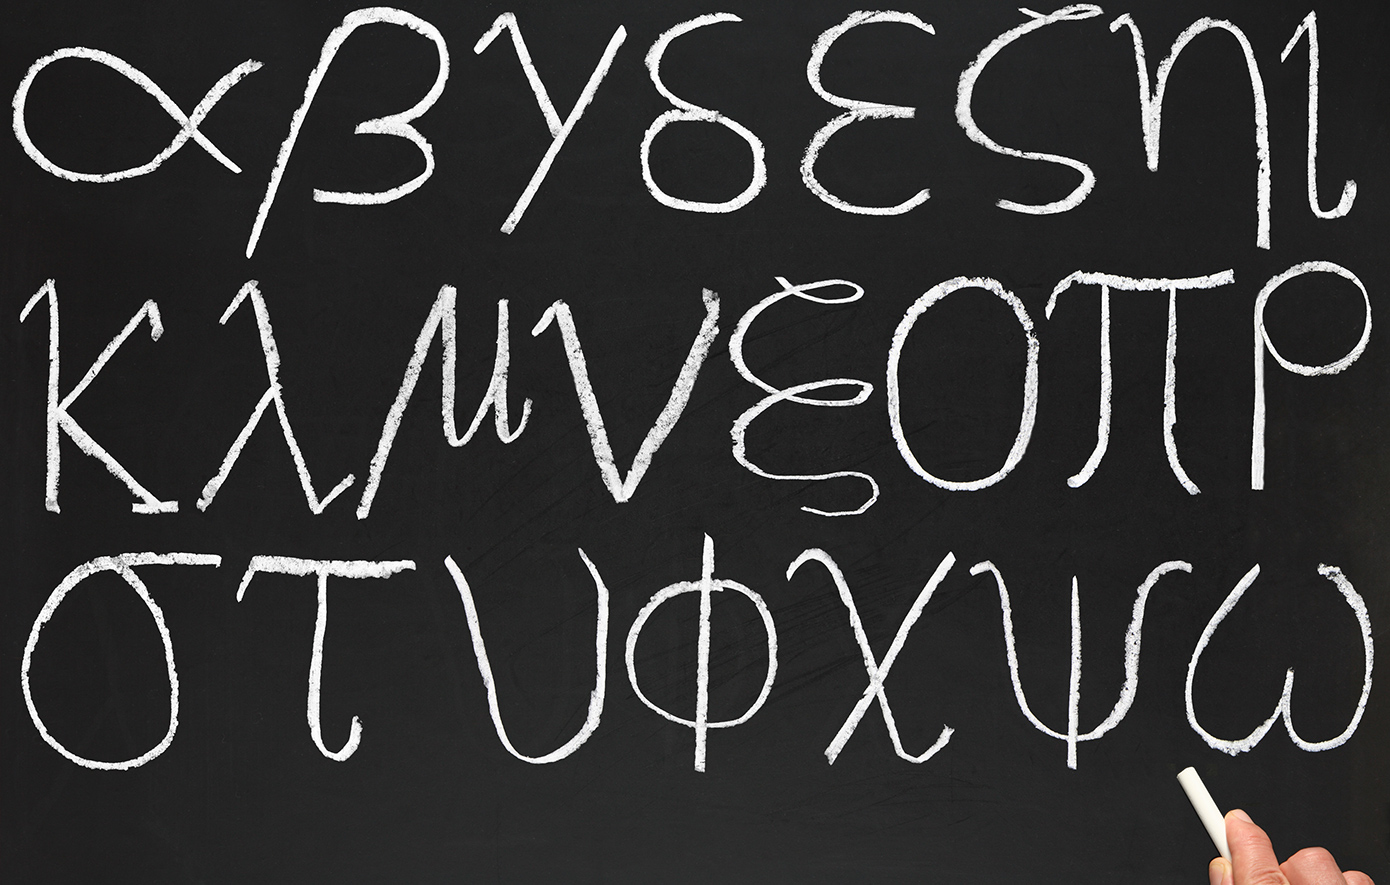 α β γ δ ε ζ η ι
κ λ μ ν ξ ο π ρ
σ τ υ φ χ ψ ω